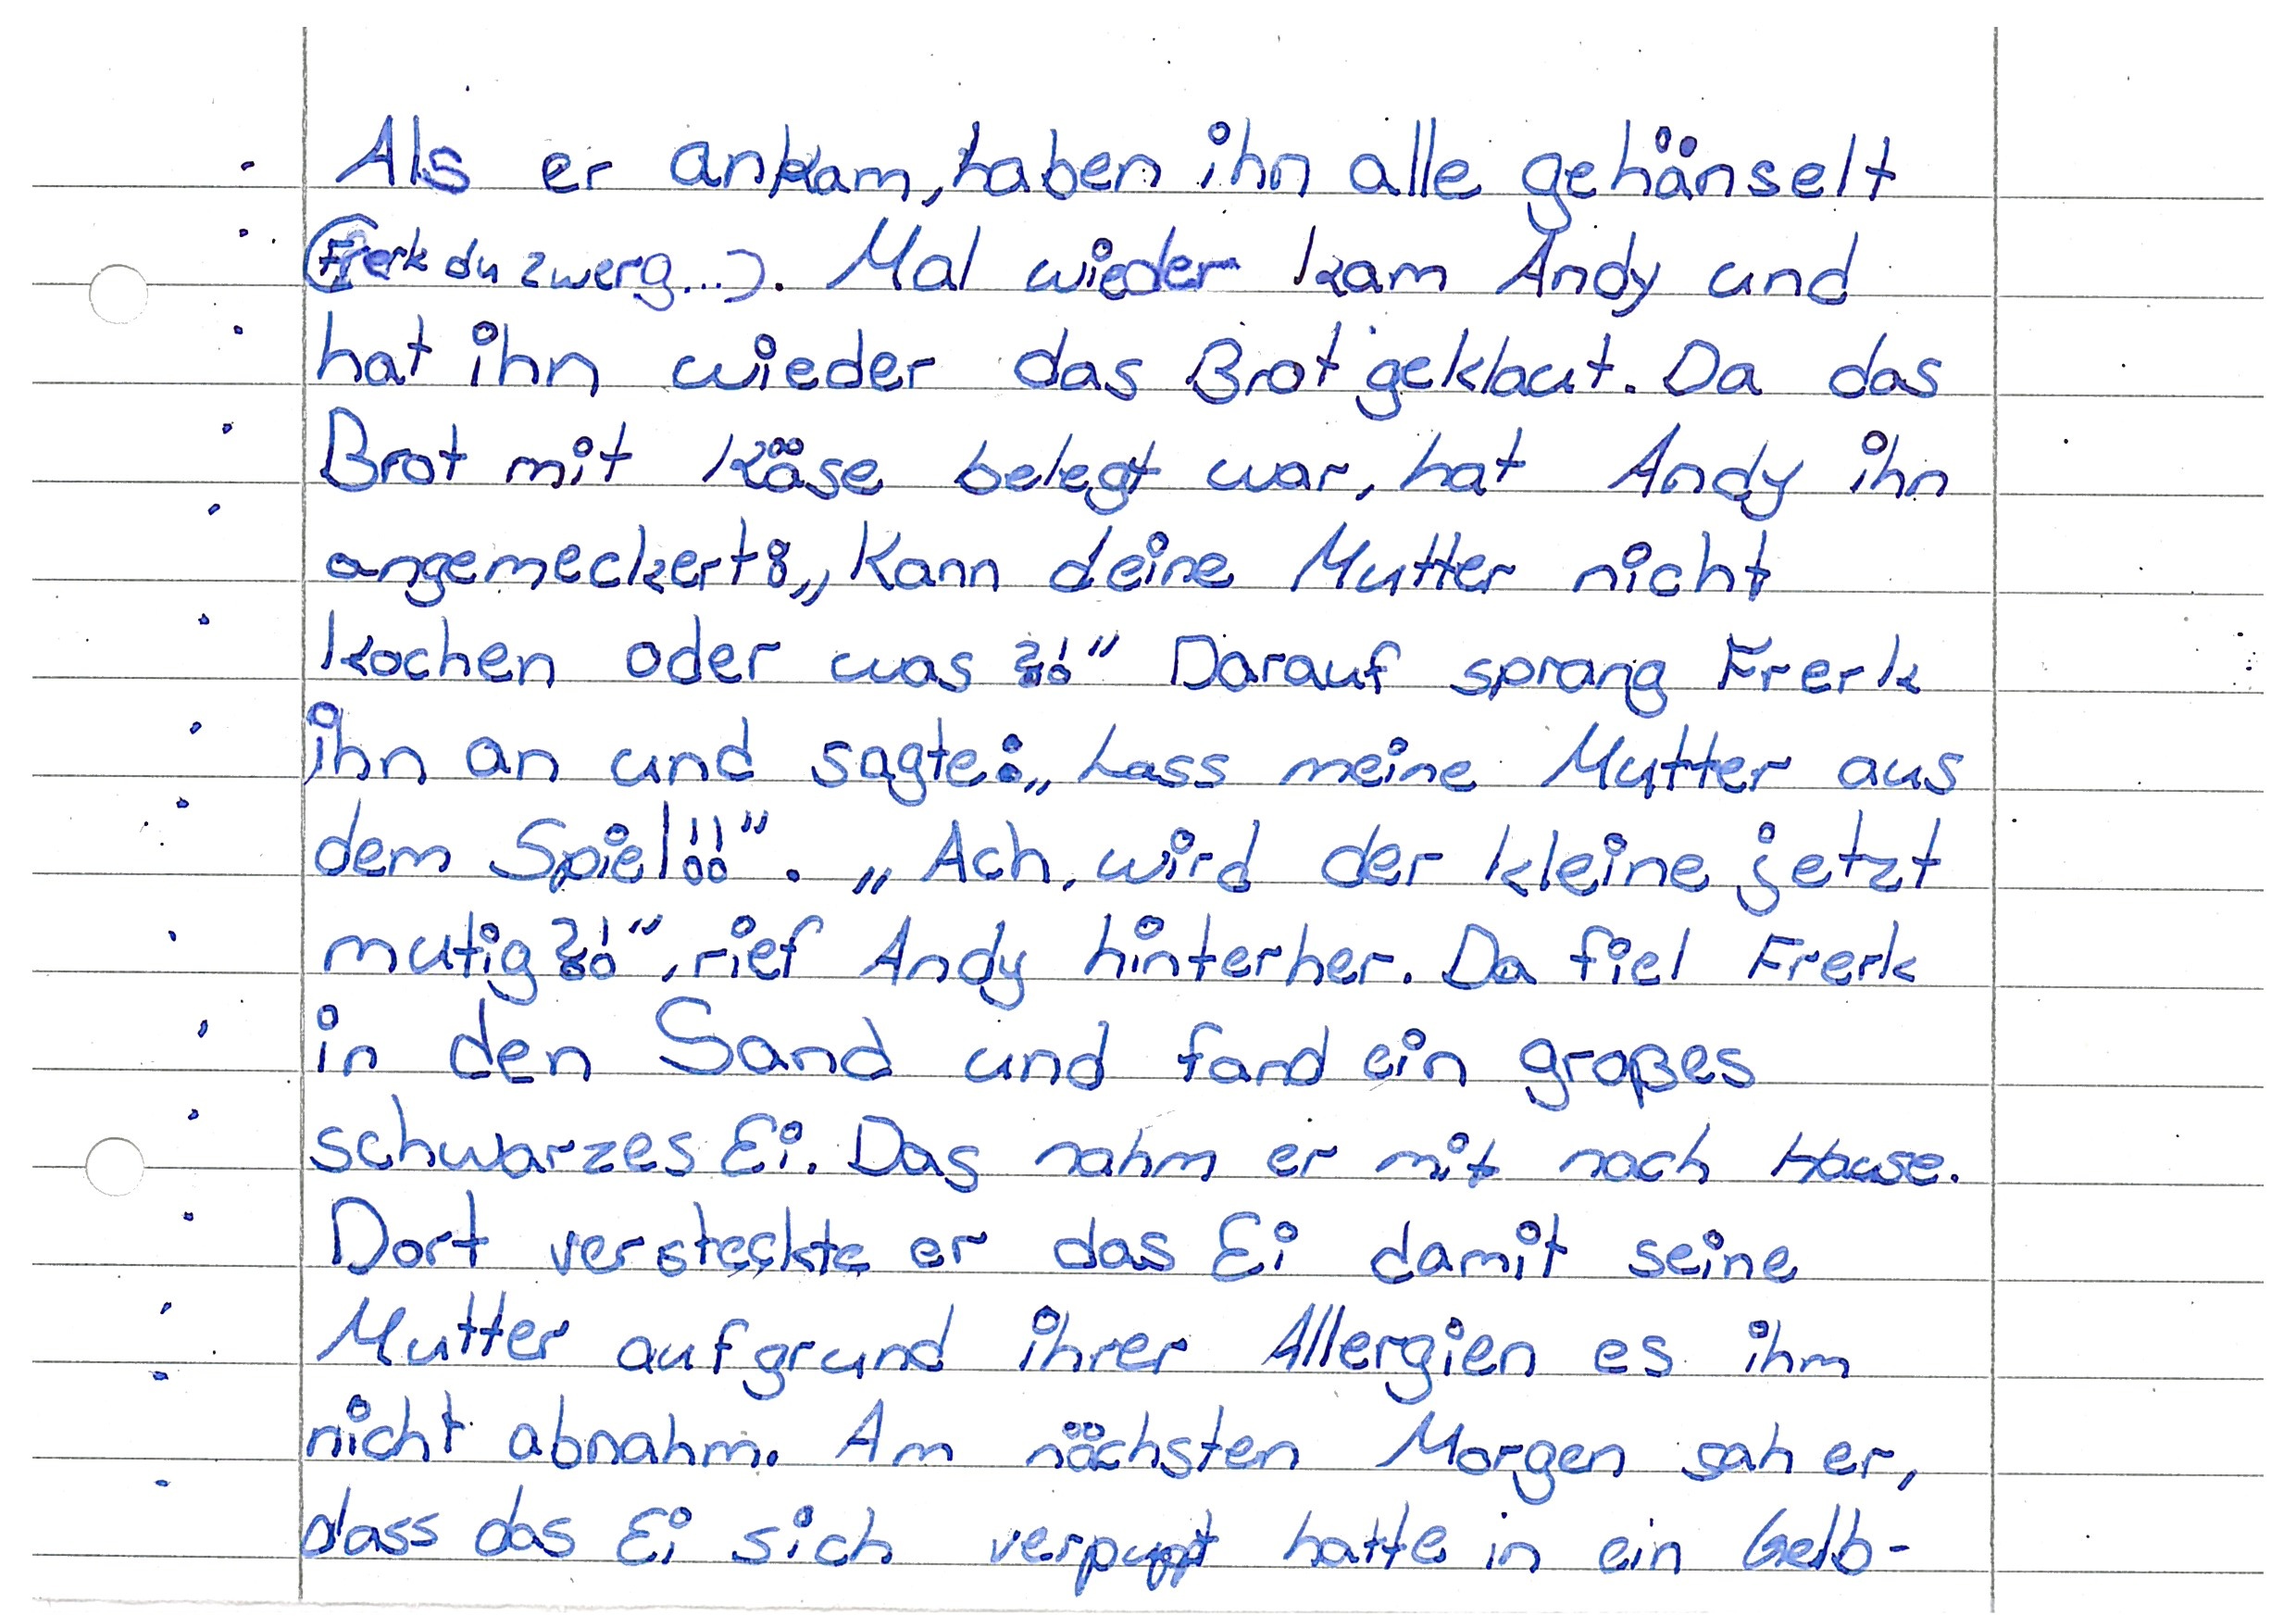 Als er ankam, haben ihn alle gehänselt
(Frerk du zwerg...). Mal wieder kam Andy und
hat ihn wieder das Brot geklaut. Da das
Brot mit Käse belegt war, hat Andy ihn
angemeckert: „Kann deine Mutter nicht
kochen oder was?!" Darauf sprang Frerk
ihn an und sagte: „Lass meine Mutter aus
dem Spiel!!". „Ach, wird der kleine jetzt
mutig?!", rief Andy hinterher. Da fiel Frerk
in den Sand und fand ein großes
schwarzes Ei. Das nahm er mit nach Hause.
Dort versteckte er das Ei damit seine
Mutter aufgrund ihrer Allergien es ihm
nicht abnahm. Am nächsten Morgen sah er,
dass das Ei sich verpuppt hatte in ein Gelb-